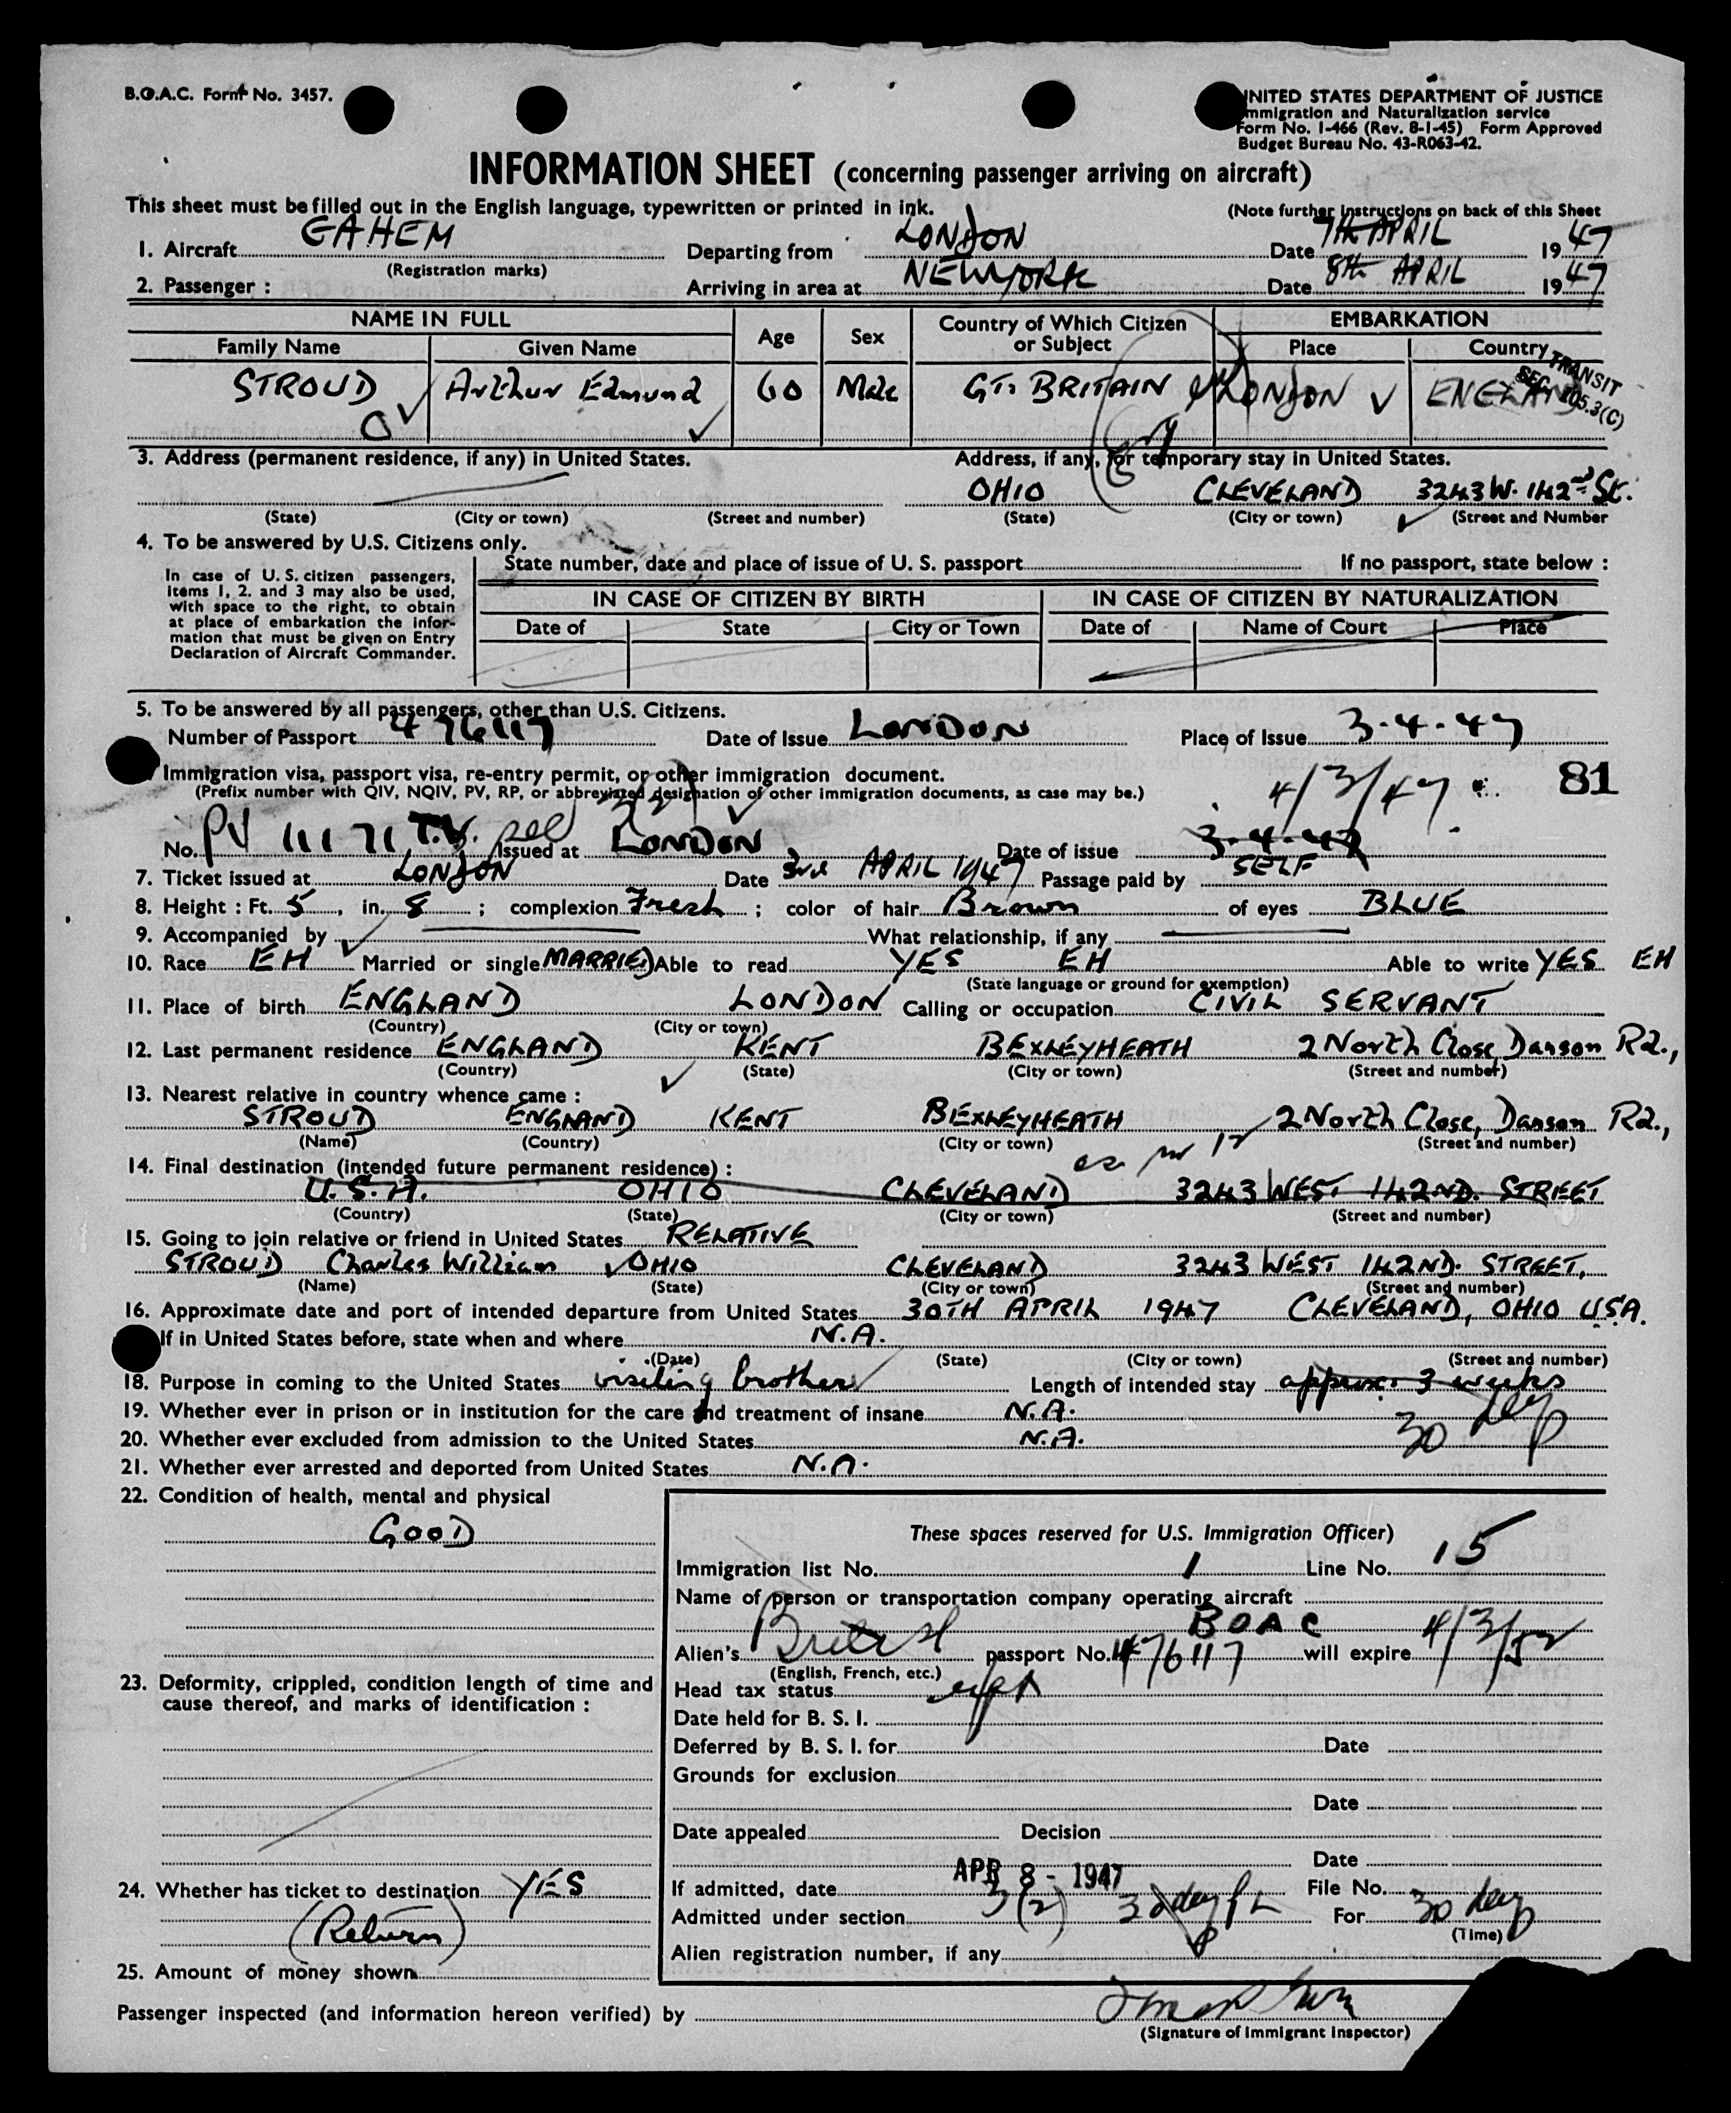 B.O.A.C. Form No. 3457.
UNITED STATES DEPARTMENT OF JUSTICE
Immigration and Naturalization service
Form No. I-466 (Rev. 8-1-45) Form Approved
Budget Bureau No. 43-R063-42.
INFORMATION SHEET (concerning passenger arriving on aircraft)
This sheet must be filled out in the English language, typewritten or printed in ink.
(Note further instructions on back of this Sheet
1. Aircraft GAHEM Departing from LONDON Date 7th APRIL 1947
(Registration marks)
2. Passenger : Arriving in area at NEW YORK Date 8th APRIL 1947
NAME IN FULL Age Sex Country of Which Citizen or Subject EMBARKATION
Family Name Given Name Place Country
TRANSIT SEC. 105.3(C)
STROUD Arthur Edmund 60 Male GT. BRITAIN LONDON ENGLAND
3. Address (permanent residence, if any) in United States. Address, if any, for temporary stay in United States.
OHIO CLEVELAND 3243 W. 142nd St.
(State) (City or town) (Street and number) (State) (City or town) (Street and Number
4. To be answered by U.S. Citizens only.
State number, date and place of issue of U. S. passport If no passport, state below :
In case of U.S. citizen passengers,
items 1, 2. and 3 may also be used,
with space to the right, to obtain
at place of embarkation the infor-
mation that must be given on Entry
Declaration of Aircraft Commander.
IN CASE OF CITIZEN BY BIRTH IN CASE OF CITIZEN BY NATURALIZATION
Date of State City or Town Date of Name of Court Place
5. To be answered by all passengers, other than U.S. Citizens.
Number of Passport 476117 Date of Issue LONDON Place of Issue 3-4-47
Immigration visa, passport visa, re-entry permit, or other immigration document.
(Prefix number with QIV, NQIV, PV, RP, or abbreviated designation of other immigration documents, as case may be.)
3(2) 4/3/47 81
No. PV 111171 T.V. Issued at LONDON Date of issue 3-4-47
7. Ticket issued at LONDON Date 3rd APRIL 1947 Passage paid by SELF
8. Height : Ft. 5, in. 8 ; complexion Fresh ; color of hair Brown of eyes BLUE
9. Accompanied by What relationship, if any
10. Race EH Married or single MARRIED Able to read YES EH Able to write YES EH
(State language or ground for exemption)
11. Place of birth ENGLAND LONDON Calling or occupation CIVIL SERVANT
(Country) (City or town)
12. Last permanent residence ENGLAND KENT BEXLEYHEATH 2 North Close, Danson Rd.,
(Country) (State) (City or town) (Street and number)
13. Nearest relative in country whence came :
STROUD ENGLAND KENT BEXLEYHEATH 2 North Close, Danson Rd.,
(Name) (Country) (City or town) (Street and number)
14. Final destination (intended future permanent residence) : as per 12
U.S.A. OHIO CLEVELAND 3243 WEST 142ND. STREET
(Country) (State) (City or town) (Street and number)
15. Going to join relative or friend in United States RELATIVE
STROUD Charles William OHIO CLEVELAND 3243 WEST 142ND. STREET,
(Name) (State) (City or town) (Street and number)
16. Approximate date and port of intended departure from United States 30TH APRIL 1947 CLEVELAND, OHIO USA.
If in United States before, state when and where N.A.
(Date) (State) (City or town) (Street and number)
18. Purpose in coming to the United States visiting brother Length of intended stay approx. 3 weeks
19. Whether ever in prison or in institution for the care and treatment of insane N.A. 30 days
20. Whether ever excluded from admission to the United States N.A.
21. Whether ever arrested and deported from United States N.A.
22. Condition of health, mental and physical
GOOD
These spaces reserved for U.S. Immigration Officer)
Immigration list No. 1 Line No. 15
Name of person or transportation company operating aircraft
BOAC
Alien's British passport No. 476117 will expire 4/3/52
(English, French, etc.)
23. Deformity, crippled, condition length of time and
cause thereof, and marks of identification :
Head tax status
Date held for B. S. I.
Deferred by B. S. I. for Date
Grounds for exclusion
Date
Date appealed Decision
Date
24. Whether has ticket to destination YES
(Return)
If admitted, date APR 8 - 1947 File No.
Admitted under section 3(2) 30 days For 30 days
(Time)
Alien registration number, if any
25. Amount of money shown
Passenger inspected (and information hereon verified) by
(Signature of Immigrant Inspector)